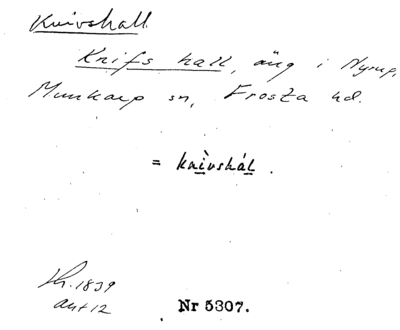 Knivshall
Knifs hall, äng i Nyrup,
Munkarp sn, Frosta hd.
= knìvshál.
1839
akt 12
Nr 5307.